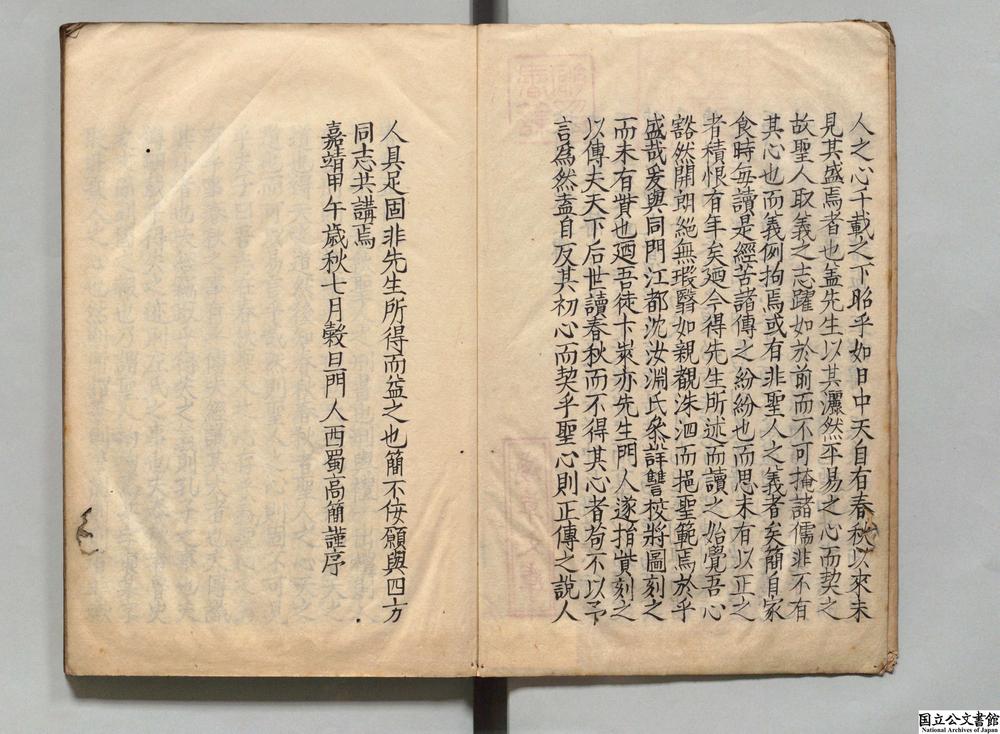 人之心千載之下昭乎如日中天自右春秋以來未
見其盛焉者也盖先生以其灑然平易之心而契之
故聖人取義之志躍如於前而不可掩諸儒非不有
其心也而義例拘焉或有非聖人之義者矣簡自家
食時每讀是經苦諸傳之紛紛也而思未有以正之
者積恨有年矣廼今得先生所述而讀之始覺吾心
豁然開朗絕無瑕翳如親觀洙泗而挹聖範焉於乎
盛哉爰與同門江都沈汝淵氏叅詳讐校將圖刻之
而未有貲也廼吾徒卞萊亦先生門人遂捐貲刻之
以傳夫天下后世讀春秋而不得其心者茍不以予
言為然盍自反其初心而契乎聖心則正傳之說人
人具足固非先生所得而益之也簡不佞願與四方
同志共講焉
嘉靖甲午歲秋七月穀旦門人西蜀高簡謹序
国立公文書館
National Archives of Japan